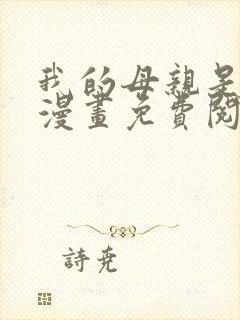 我的母親是
漫畫免費閱
詩尧